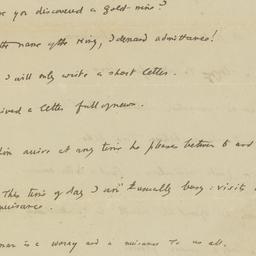 you discovered a gold-mine?
the name of the King, I demand admittance!
I will only write a short letter.
a letter full of news.
arrive at any time he pleases between 6 and
This time of day I am usually busy: visit
nuisance.
man is a worry and a nuisance to us all.